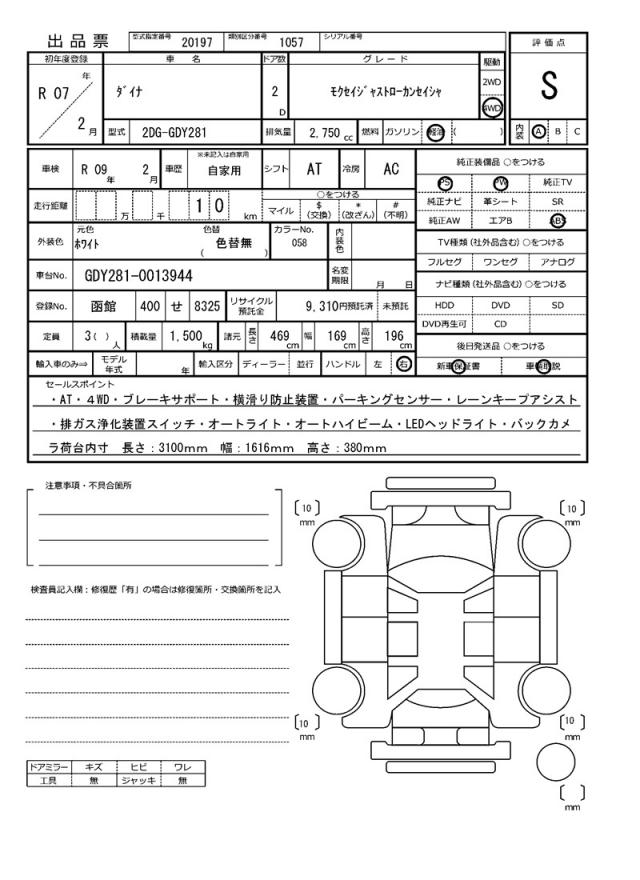 出品票 型式指定番号 20197 類別区分番号 1057 シリアル番号
初年度登録 車名 ドア数 グレード 駆動 評価点
R 07 年 2 月 ﾀﾞｲﾅ 2 D ﾓｸｾｲｼﾞｬｽﾄﾛｰｶﾝｾｲｼｬ 2WD 4WD S
型式 2DG-GDY281 排気量 2,750 cc 燃料 ガソリン 軽油 ( ) 内装 A B C
車検 R 09 年 2 月 車歴 ※未記入は自家用 自家用 シフト AT 冷房 AC 純正装備品 ○をつける
PS PW 純正TV
走行距離 万 千 1 0 km ○をつける 純正ナビ 革シート SR
マイル $ (交換) * (改ざん) # (不明) 純正AW エアB ABS
外装色 元色 ﾎﾜｲﾄ 色替 色替無 ( ) カラーNo. 058 内装色 TV種類 (社外品含む) ○をつける
フルセグ ワンセグ アナログ
車台No. GDY281-0013944 名変期限 月 日 ナビ種類 (社外品含む) ○をつける
登録No. 函館 400 せ 8325 リサイクル預託金 9,310円預託済 未預託 HDD DVD SD
DVD再生可 CD
定員 3( ) 人 積載量 1,500 kg 諸元 長さ 469 cm 幅 169 cm 高さ 196 cm 後日発送品 ○をつける
輸入車のみ⇒ モデル年式 年 輸入区分 ディーラー 並行 ハンドル 左 右 新車保証書 車輌取説
セールスポイント
・AT・4WD・ブレーキサポート・横滑り防止装置・パーキングセンサー・レーンキープアシスト
・排ガス浄化装置スイッチ・オートライト・オートハイビーム・LEDヘッドライト・バックカメ
ラ荷台内寸 長さ:3100mm 幅:1616mm 高さ:380mm
注意事項・不具合箇所
検査員記入欄:修復歴「有」の場合は修復箇所・交換箇所を記入
10 mm
10 mm
10 mm
10 mm
mm
ドアミラー キズ ヒビ ワレ
工具 無 ジャッキ 無